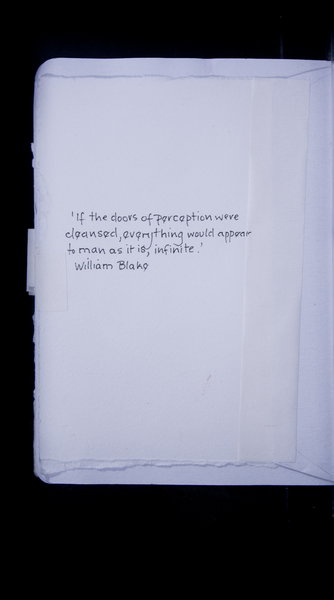 'If the doors of perception were
cleansed, everything would appear
to man as it is, infinite.'
William Blake